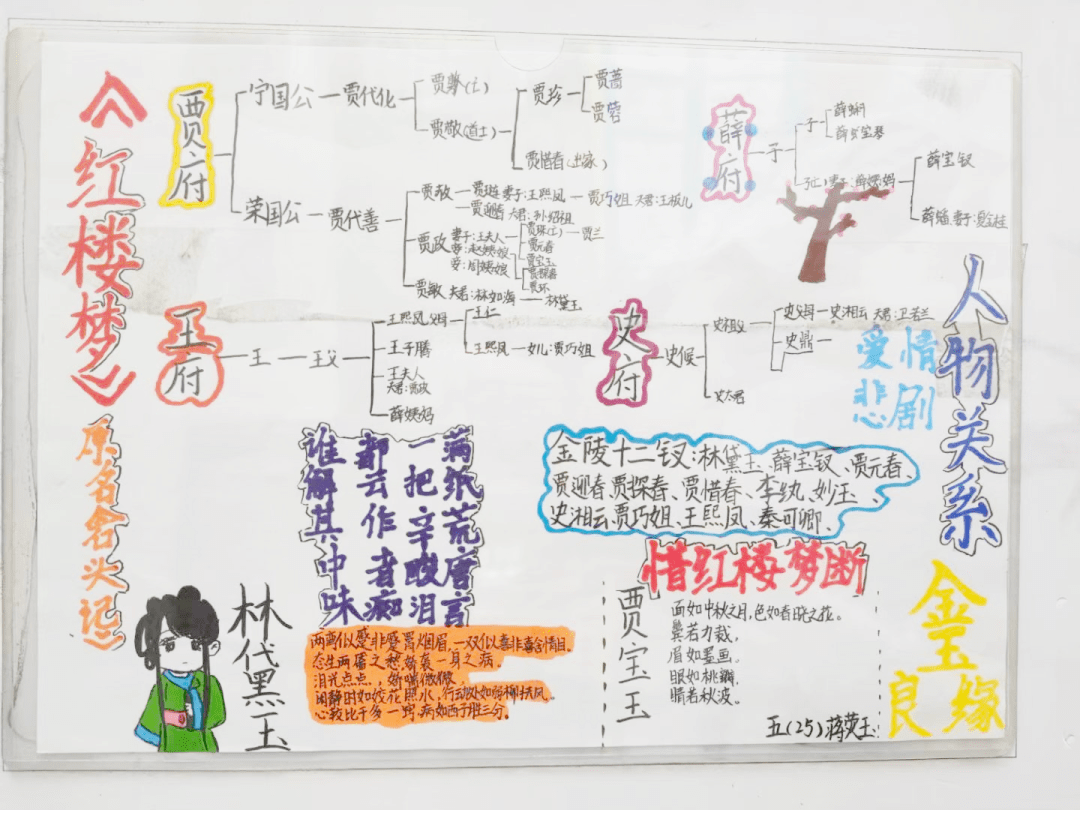 《红楼梦》
原名
头记》
贾府
宁国公
贾代化
贾敷(亡)
贾敬(道士)
贾珍
贾蔷
贾蓉
贾惜春(出家)
荣国公
贾代善
贾赦
贾琏 妻子:王熙凤
贾巧姐 夫君:王板儿
贾迎春 夫君:孙绍祖
贾政
妻子:王夫人
妾:赵姨娘
妾:周姨娘
贾珠(亡)
贾兰
贾元春
贾宝玉
贾探春
贾环
贾敏 夫君:林如海
林黛玉
薛府
子
子
薛蝌
薛宝琴
妻子:薛姨妈
薛宝钗
薛蟠 妻子:夏金桂
王府
王
王父
王熙凤父母
王仁
王熙凤
女儿:贾巧姐
王子腾
王夫人
夫君:贾政
薛姨妈
史府
史候
史祖父
史父母
史湘云 夫君:卫若兰
史鼎
史太君
人物关系
爱情
悲剧
满纸荒唐言
一把辛酸泪
都云作者痴
谁解其中味
金陵十二钗:林黛玉、薛宝钗、贾元春、
贾迎春、贾探春、贾惜春、李纨、妙玉、
史湘云、贾巧姐、王熙凤、秦可卿、
惜红楼梦断
林代黑玉
两弯似蹙非蹙罥烟眉,一双似喜非喜含情目。
态生两靥之愁,娇袭一身之病。
泪光点点,娇喘微微。
闲静时如姣花照水,行动处如弱柳扶风。
心较比干多一窍,病如西子胜三分。
贾宝玉
面如中秋之月,色如春晓之花。
鬓若刀裁,
眉如墨画,
眼如桃瓣,
睛若秋波。
五(25)
金玉
良缘